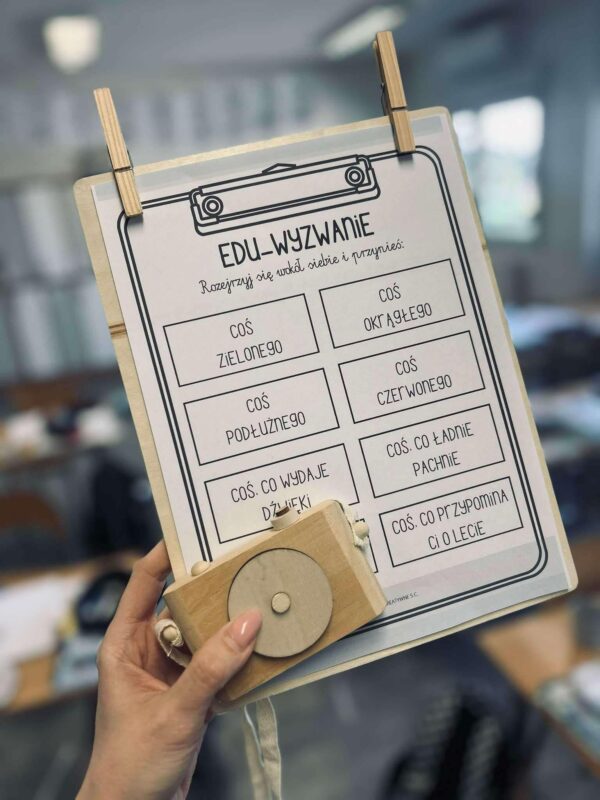 EDU-WYZWANIE
Rozejrzyj się wokół siebie i przynieś:
COŚ
ZIELONEGO
COŚ
OKRĄGŁEGO
COŚ
PODŁUŻNEGO
COŚ
CZERWONEGO
COŚ, CO WYDAJE
DŹWIĘKI
COŚ, CO ŁADNIE
PACHNIE
COŚ, CO PRZYPOMINA
CI O LECIE
S.C.